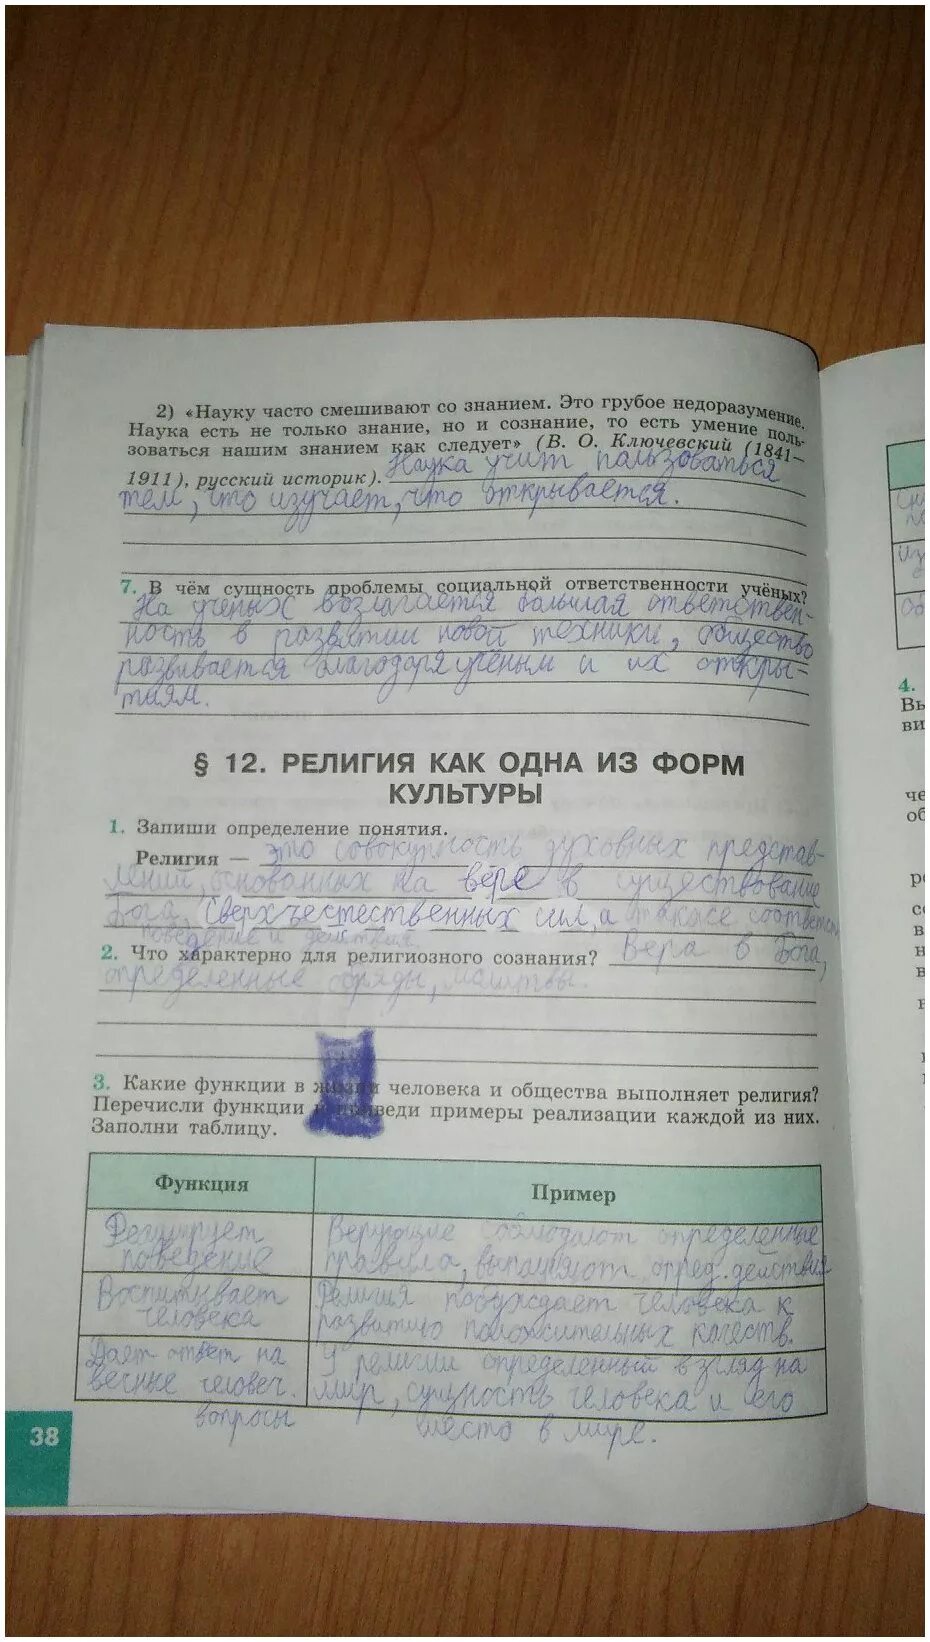 2) «Науку часто смешивают со знанием. Это грубое недоразумение.
Наука есть не только знание, но и сознание, то есть умение поль-
зоваться нашим знанием как следует» (В. О. Ключевский (1841—
1911), русский историк). Наука учит пользоваться
тем, что изучает, что открывается.
7. В чём сущность проблемы социальной ответственности учёных?
На учёных возлагается большая ответствен-
ность в развитии новой техники, общество
развивается благодаря учёным и их откры-
тиям.
§ 12. РЕЛИГИЯ КАК ОДНА ИЗ ФОРМ
КУЛЬТУРЫ
1. Запиши определение понятия.
Религия — это совокупность духовных представ-
лений, основанных на вере в существование
Бога, сверхъестественных сил, а также соответств
поведение и действия.
2. Что характерно для религиозного сознания? Вера в Бога,
определенные обряды, молитвы.
3. Какие функции в жизни человека и общества выполняет религия?
Перечисли функции и приведи примеры реализации каждой из них.
Заполни таблицу.
Функция Пример
Регулирует Верующие соблюдают определенные
поведение правила, выполняют опред. действия
Воспитывает Религия побуждает человека к
человека развитию положительных качеств.
Дает ответ на У религии определенный взгляд на
вечные человеч. мир, сущность человека и его
вопросы место в мире.
38
4.
Вы
ви
че
об